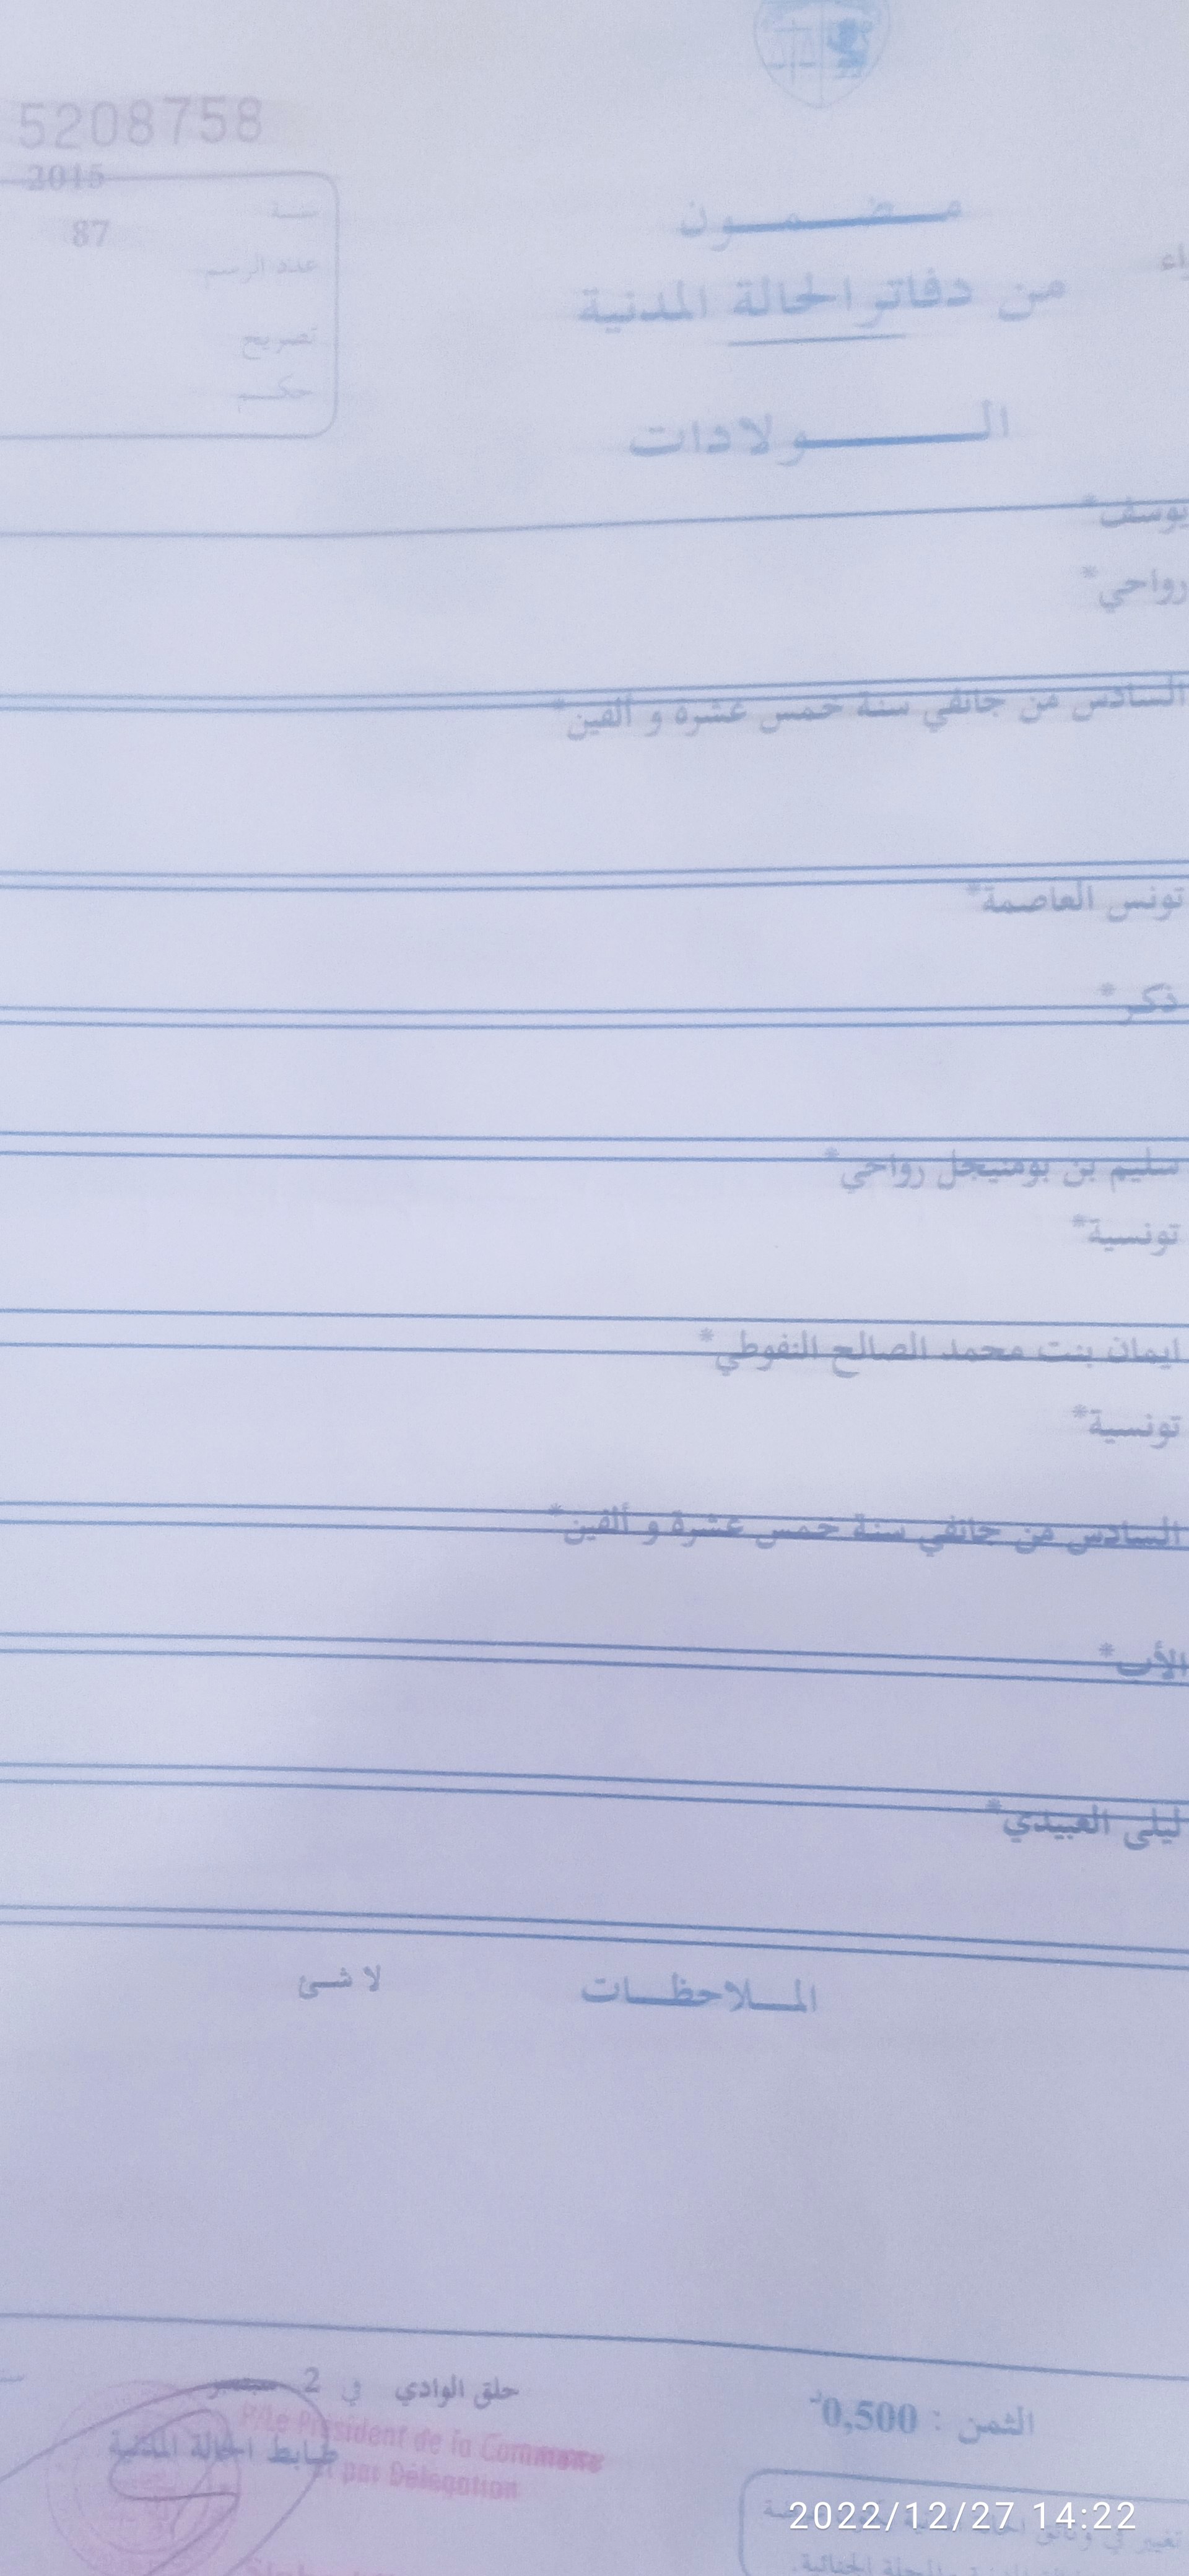 5208758
2015
سنة
87
عدد الرسم
تصريح
حكم
مضمون
من دفاتر الحالة المدنية
الولادات
يوسف*
رواحي*
السادس من جانفي سنة خمس عشرة و ألفين*
تونس العاصمة*
ذكر*
سليم بن بومنيجل رواحي*
تونسية*
ايمان بنت محمد الصالح النفوطي*
تونسية*
السادس من جانفي سنة خمس عشرة و ألفين*
الأب*
ليلى العبيدي*
الملاحظات
لا شئ
حلق الوادي في 2 سبتمبر
ضابط الحالة المدنية
P/Le Président de la Commune
et par Délégation
الثمن : 0,500د
تغيير في وثائق الحالة المدنية
المجلة الجنائية.
2022/12/27 14:22